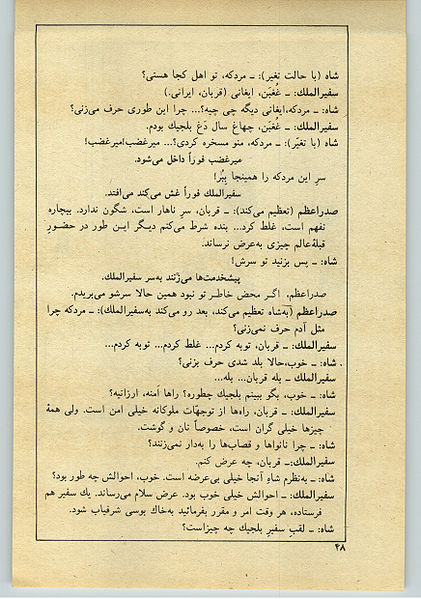 شاه (با حالت تغیر): ـ مردکه، تو اهل کجا هستی؟
سفیرالملك: ـ غُغبَن، ایغانی (قربان، ایرانی.)
شاه: ـ مردکه،ایغانی دیگه چی چیه؟... چرا این طوری حرف می‌زنی؟
سفیرالملك: ـ غُغبَن، چهاغ سال دَغ بلجیك بودم.
شاه (با تغیّر): ـ مردکه، منو مسخره کردی؟... میرغضب!میرغضب!
میرغضب فوراً داخل می‌شود.
سرِ این مردکه را همینجا ببُر!
سفیرالملك فوراً غش می‌کند می‌افتد.
صدراعظم (تعظیم می‌کند): ـ قربان، سرِ ناهار است، شگون ندارد. بیچاره
نفهم است، غلط کرد... بنده شرط می‌کنم دیگر ایـن طور در حضـورِ
قبلهٔ‌عالم چیزی به‌عرض نرساند.
شاه: ـ پس بزنید تو سرش!
پیشخدمت‌ها می‌زنند به‌سر سفیرالملك.
صدراعظم، اگـر محض خاطـر تو نبود همین حالا سرشو می‌بریدم.
صدراعظم (به‌شاه تعظیم می‌کند، بعد رو می‌کند به‌سفیرالملك): ـ مردکه چرا
مثل آدم حرف نمی‌زنی؟
سفیرالملك: ـ قربان، توبه کردم... غلط کردم... توبه کردم...
شاه: ـ خوب،حالا بلد شدی حرف بزنی؟
سفیرالملك ـ بله قربان... بله...
شاه: ـ خوب، بگو ببینم بلجیك چطوره؟ راها اَمنه، ارزانیه؟
سفیرالملك: ـ قربان، راه‌ها از توجهّات ملوکانه خیلی امن است. ولی همهٔ
چیزها خیلی گران است، خصوصاً نان و گوشت.
شاه: ـ چرا نانواها و قصاب‌ها را به‌دار نمی‌زنند؟
سفیرالملك:ـ قربان، چه عرض کنم.
شاه: ـ به‌نظرم شاهِ آنجا خیلی بی‌عرضه است. خوب، احوالش چه طور بود؟
سفیرالملك: ـ احوالش خیلی خوب بود. عرض سلام می‌رساند. یك سفیر هم
فرستاده، هر وقت امر و مقرر بفرمائید به‌خاك بوسی شرفیاب شود.
شاه: ـ لقبِ سفیرِ بلجیك چه چیزاست؟
۴۸